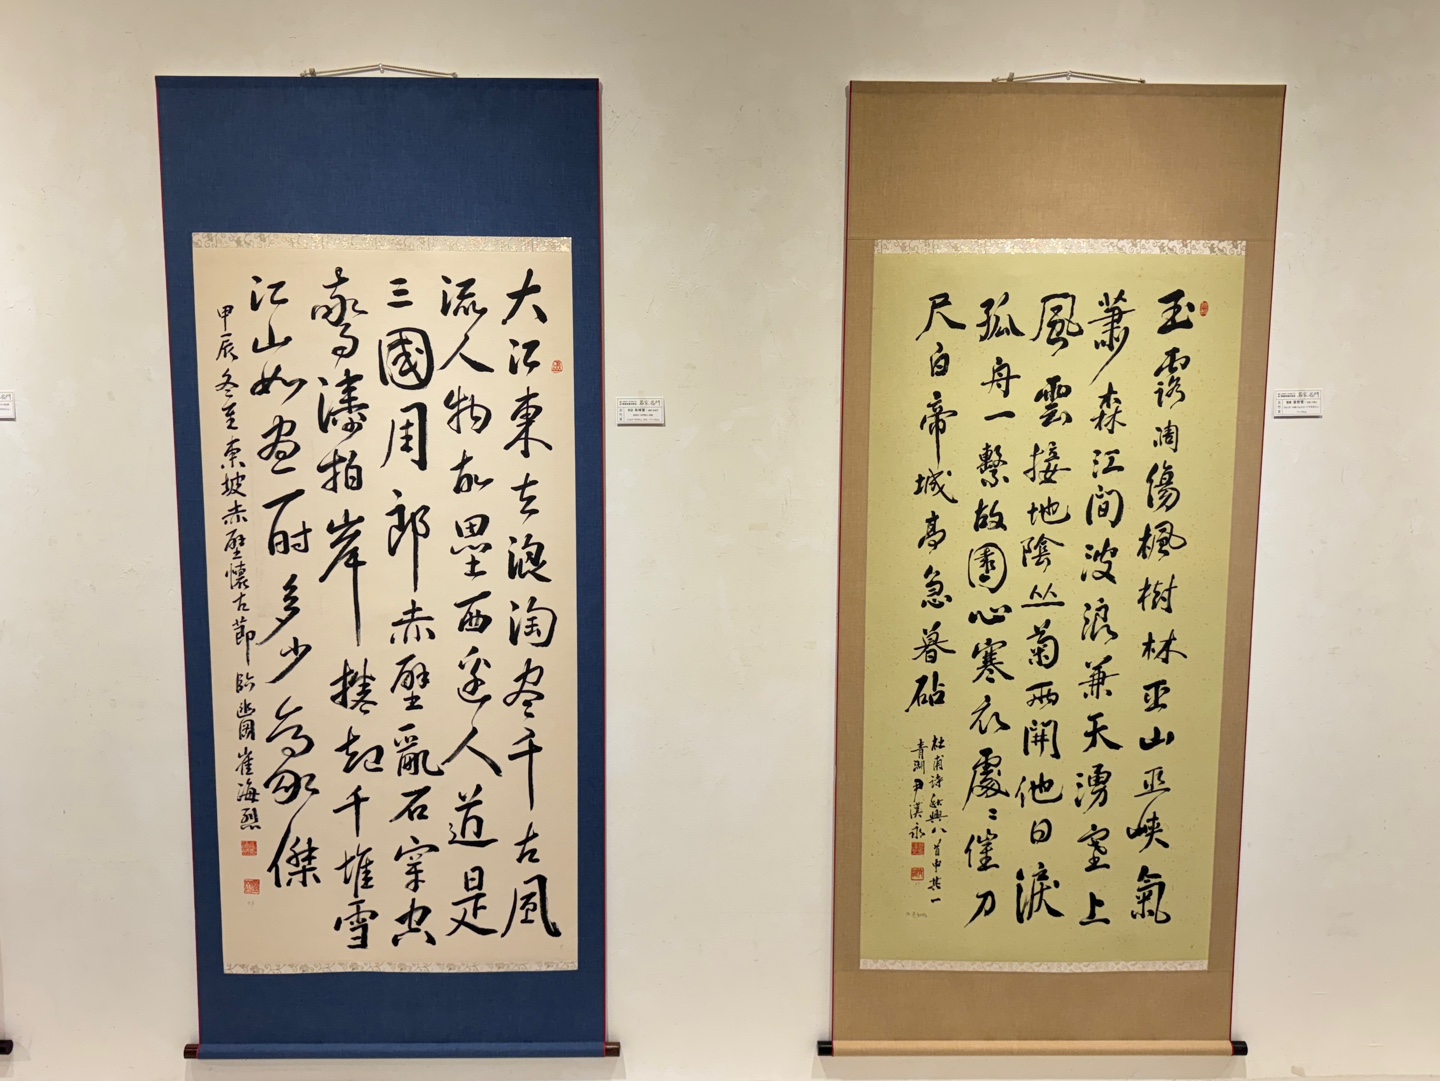 大江東去浪淘盡千古風
流人物故壘西邊人道是
三國周郎赤壁亂石穿空
驚濤拍岸捲起千堆雪
江山如畫一時多少豪傑
甲辰冬至東坡赤壁懷古節臨 崔海烈
玉露凋傷楓樹林巫山巫峽氣
蕭森江間波浪兼天湧塞上
風雲接地陰丛菊兩開他日淚
孤舟一繫故園心寒衣處〻催刀
尺白帝城高急暮砧
杜甫詩秋興八首中其一
尹漢永